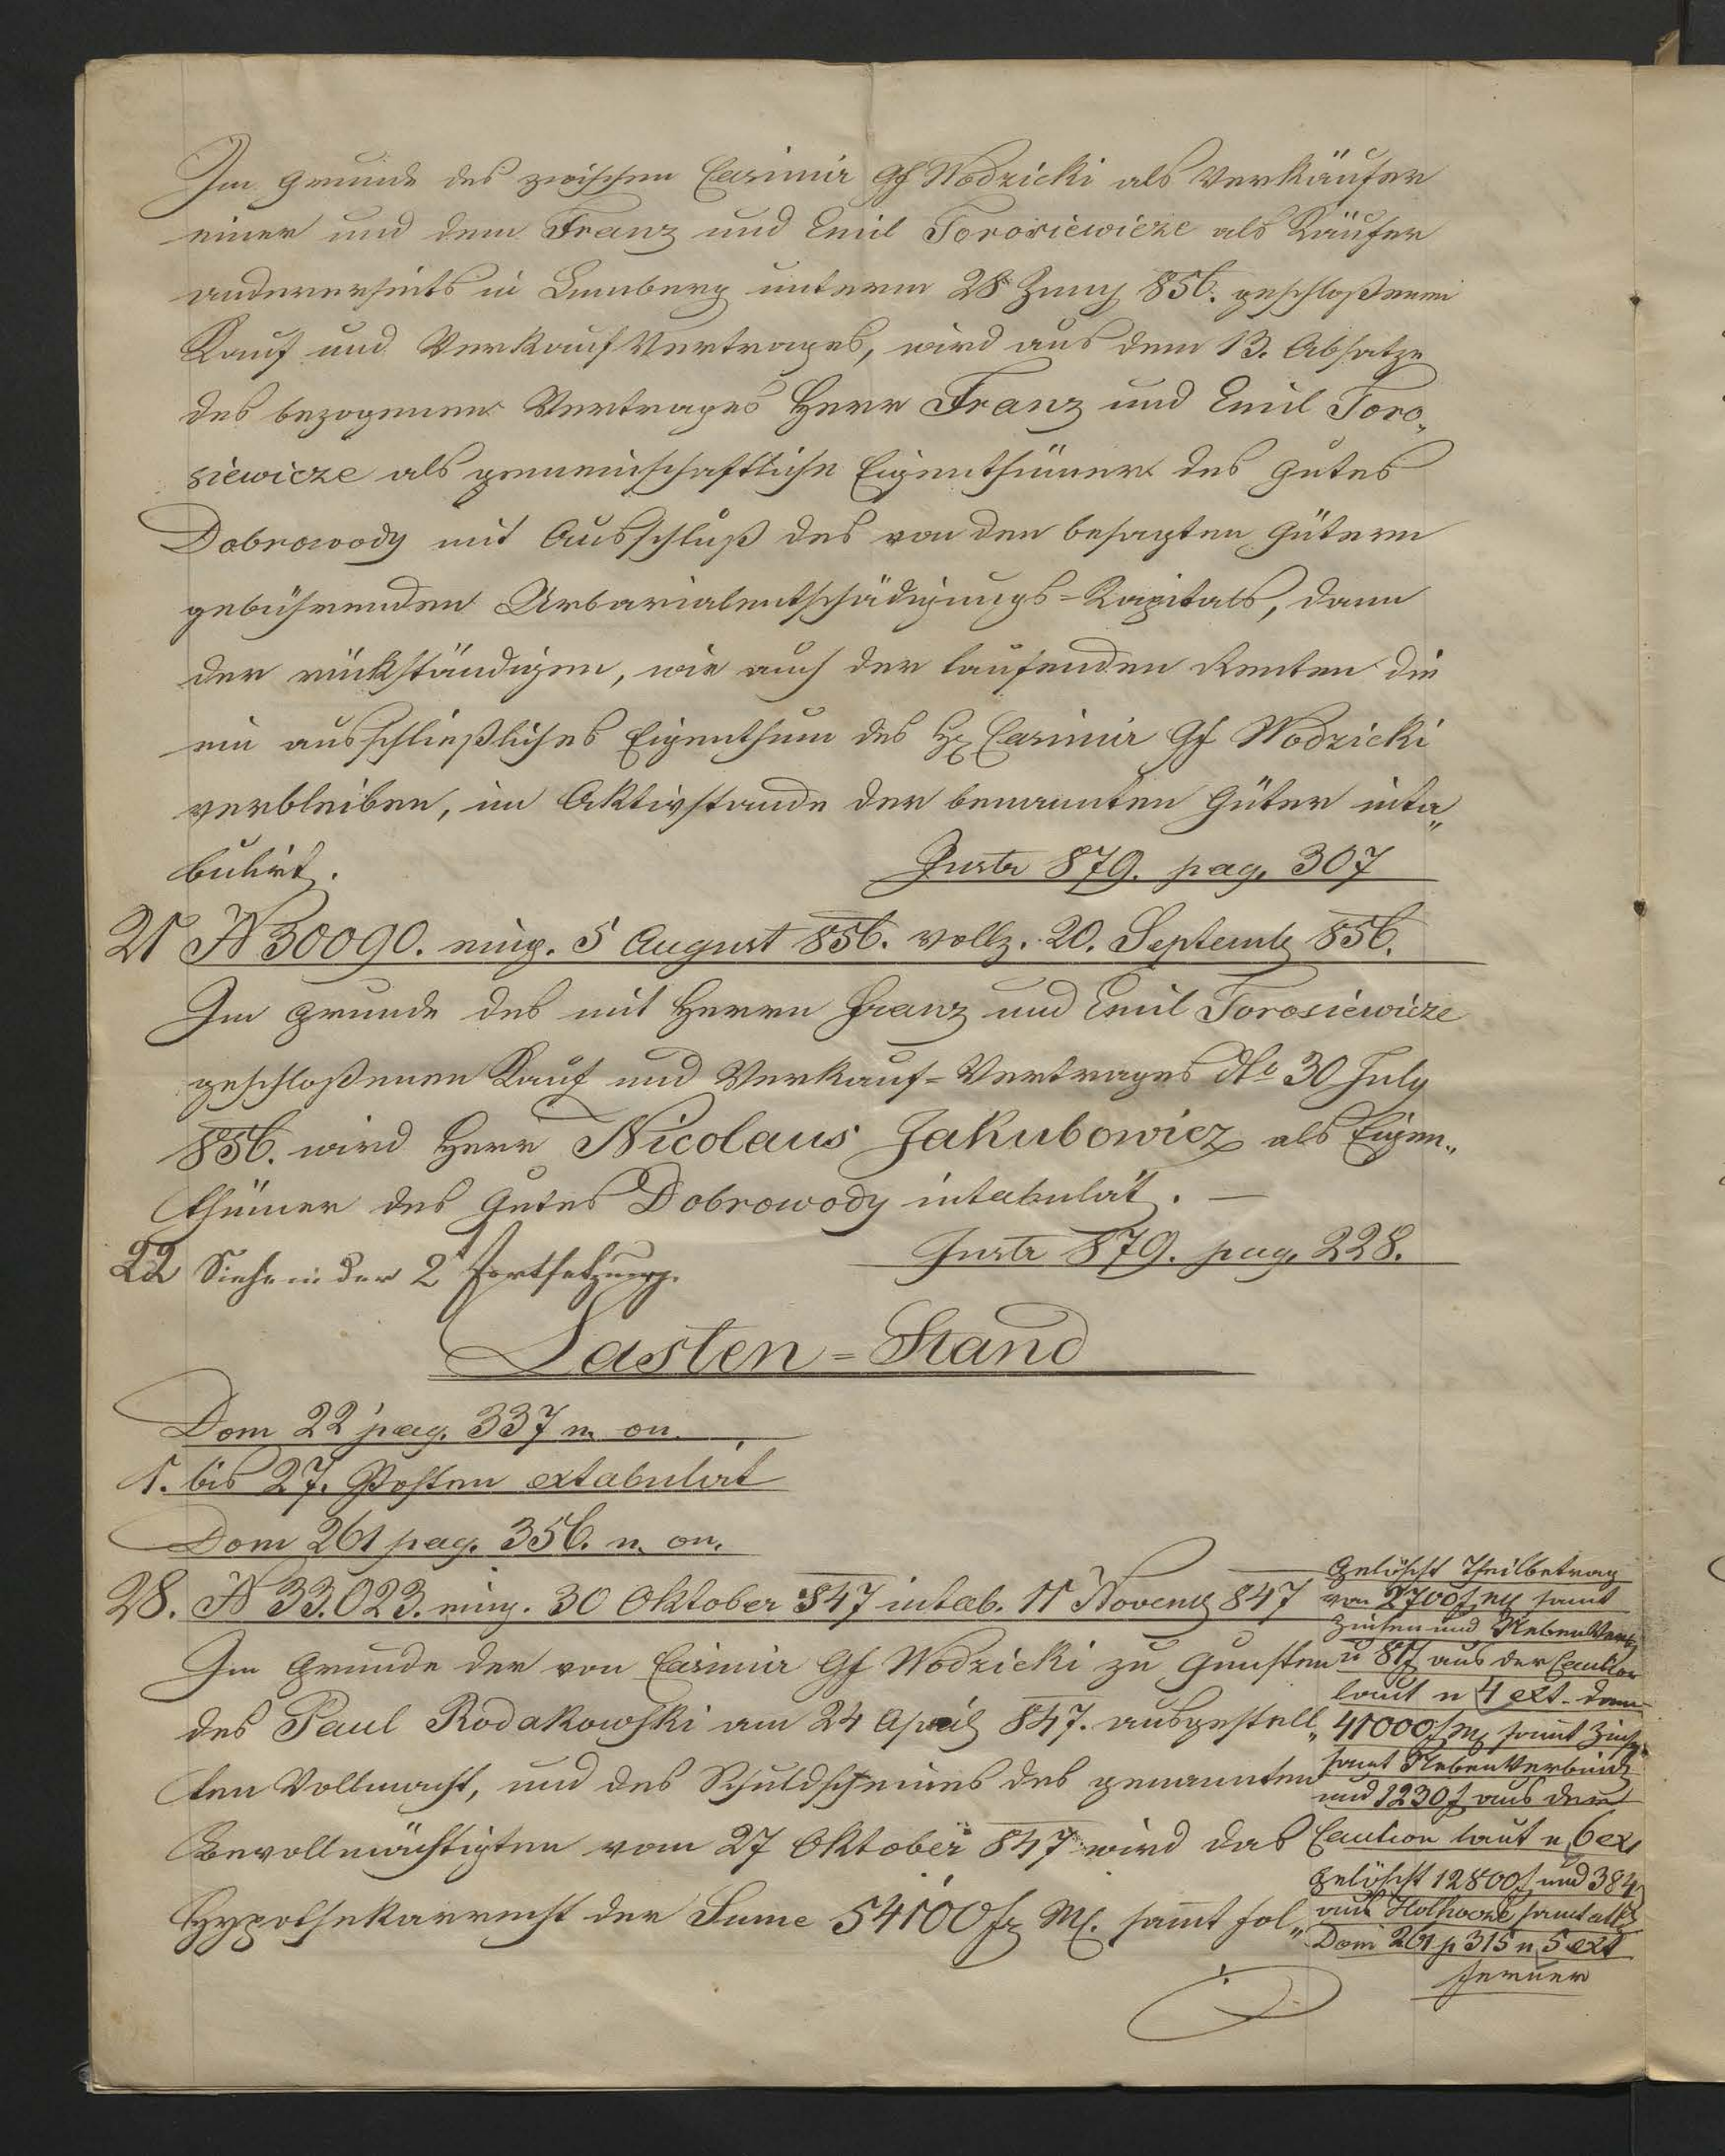 Im Grunde des zwischen Casimir Gf Wodzicki als Verkäufer
einer und dem Franz und Emil Torosiewicze als Käufer
andererseits in Lemberg unterm 28 Juny 856. geschloßenen
Kauf und Verkauf Vertrages, wird aus dem 13. Absatze
des bezogenen Vertrages Herr Franz und Emil Toro„
siewicze als gemeinschaftliche Eigenthümer des Gutes
Dobrowody mit Ausschluß des von den besagten Gütern
gebührenden Urbarialentschädigungs-Kapitals, dann
der rückständigen, wie auch der laufenden Renten die
ein ausschließliches Eigenthum des H Casimir Gf Wodzicki
verbleiben, im Aktivstande der benannten Güter inta„
bulirt.
Instr 879. pag. 307
21 N 30090. eing. 5 August 856. vollz. 20. Septemb 856.
Im Grunde des mit Herrn Franz und Emil Torosiewicze
geschloßenen Kauf und Verkauf-Vertrages dto 30 July
856. wird Herr Nicolaus Jakubowicz als Eigen„
thümer des Gutes Dobrowody intabulirt. —
Instr 879. pag. 228.
22 Siehe in der 2t Fortsetzung.
Lasten-Stand
Dom 22 pag. 337 n. on.
1. bis 27. Posten extabulirt
Dom 261 pag. 356. n. on.
28. N 33.023. eing. 30 Oktober 847 intab. 11 Novemb 847
Im Grunde der von Casimir Gf Wodzicki zu Gunsten
des Paul Rodakowski am 24 April 847. ausgestell„
ten Vollmacht, und des Schuldscheines des genannten
Bevollmächtigten vom 27 Oktober 847 wird das
Hypothekarrecht der Sume 54100 f M. samt fol„
gelöscht Theilbetrag
von 2700 f samt
Zinsen und Nebenverb
u 81 f aus der Caution
laut n 4 ext. dann
41000 f samt Zins
samt Nebenverbind
und 1230 f aus der
Caution laut n 6 ext
gelöscht 12800 f und 384
aus Holhocze samt all
Dom 261 p 315 n 5 ext
ferner